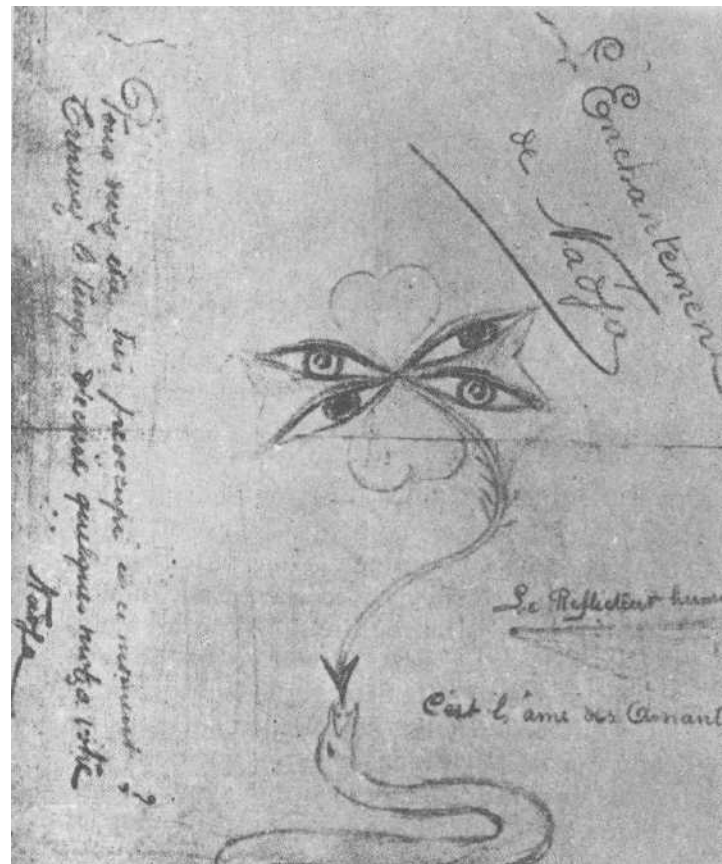 L'Enchantemen
de Nadja
Vous devez être très préoccupé en ce moment ?
Trouvez le temps d'écrire quelques mots à votre
Nadja
Le Réflecteur huma
C'est l'âme des Amant